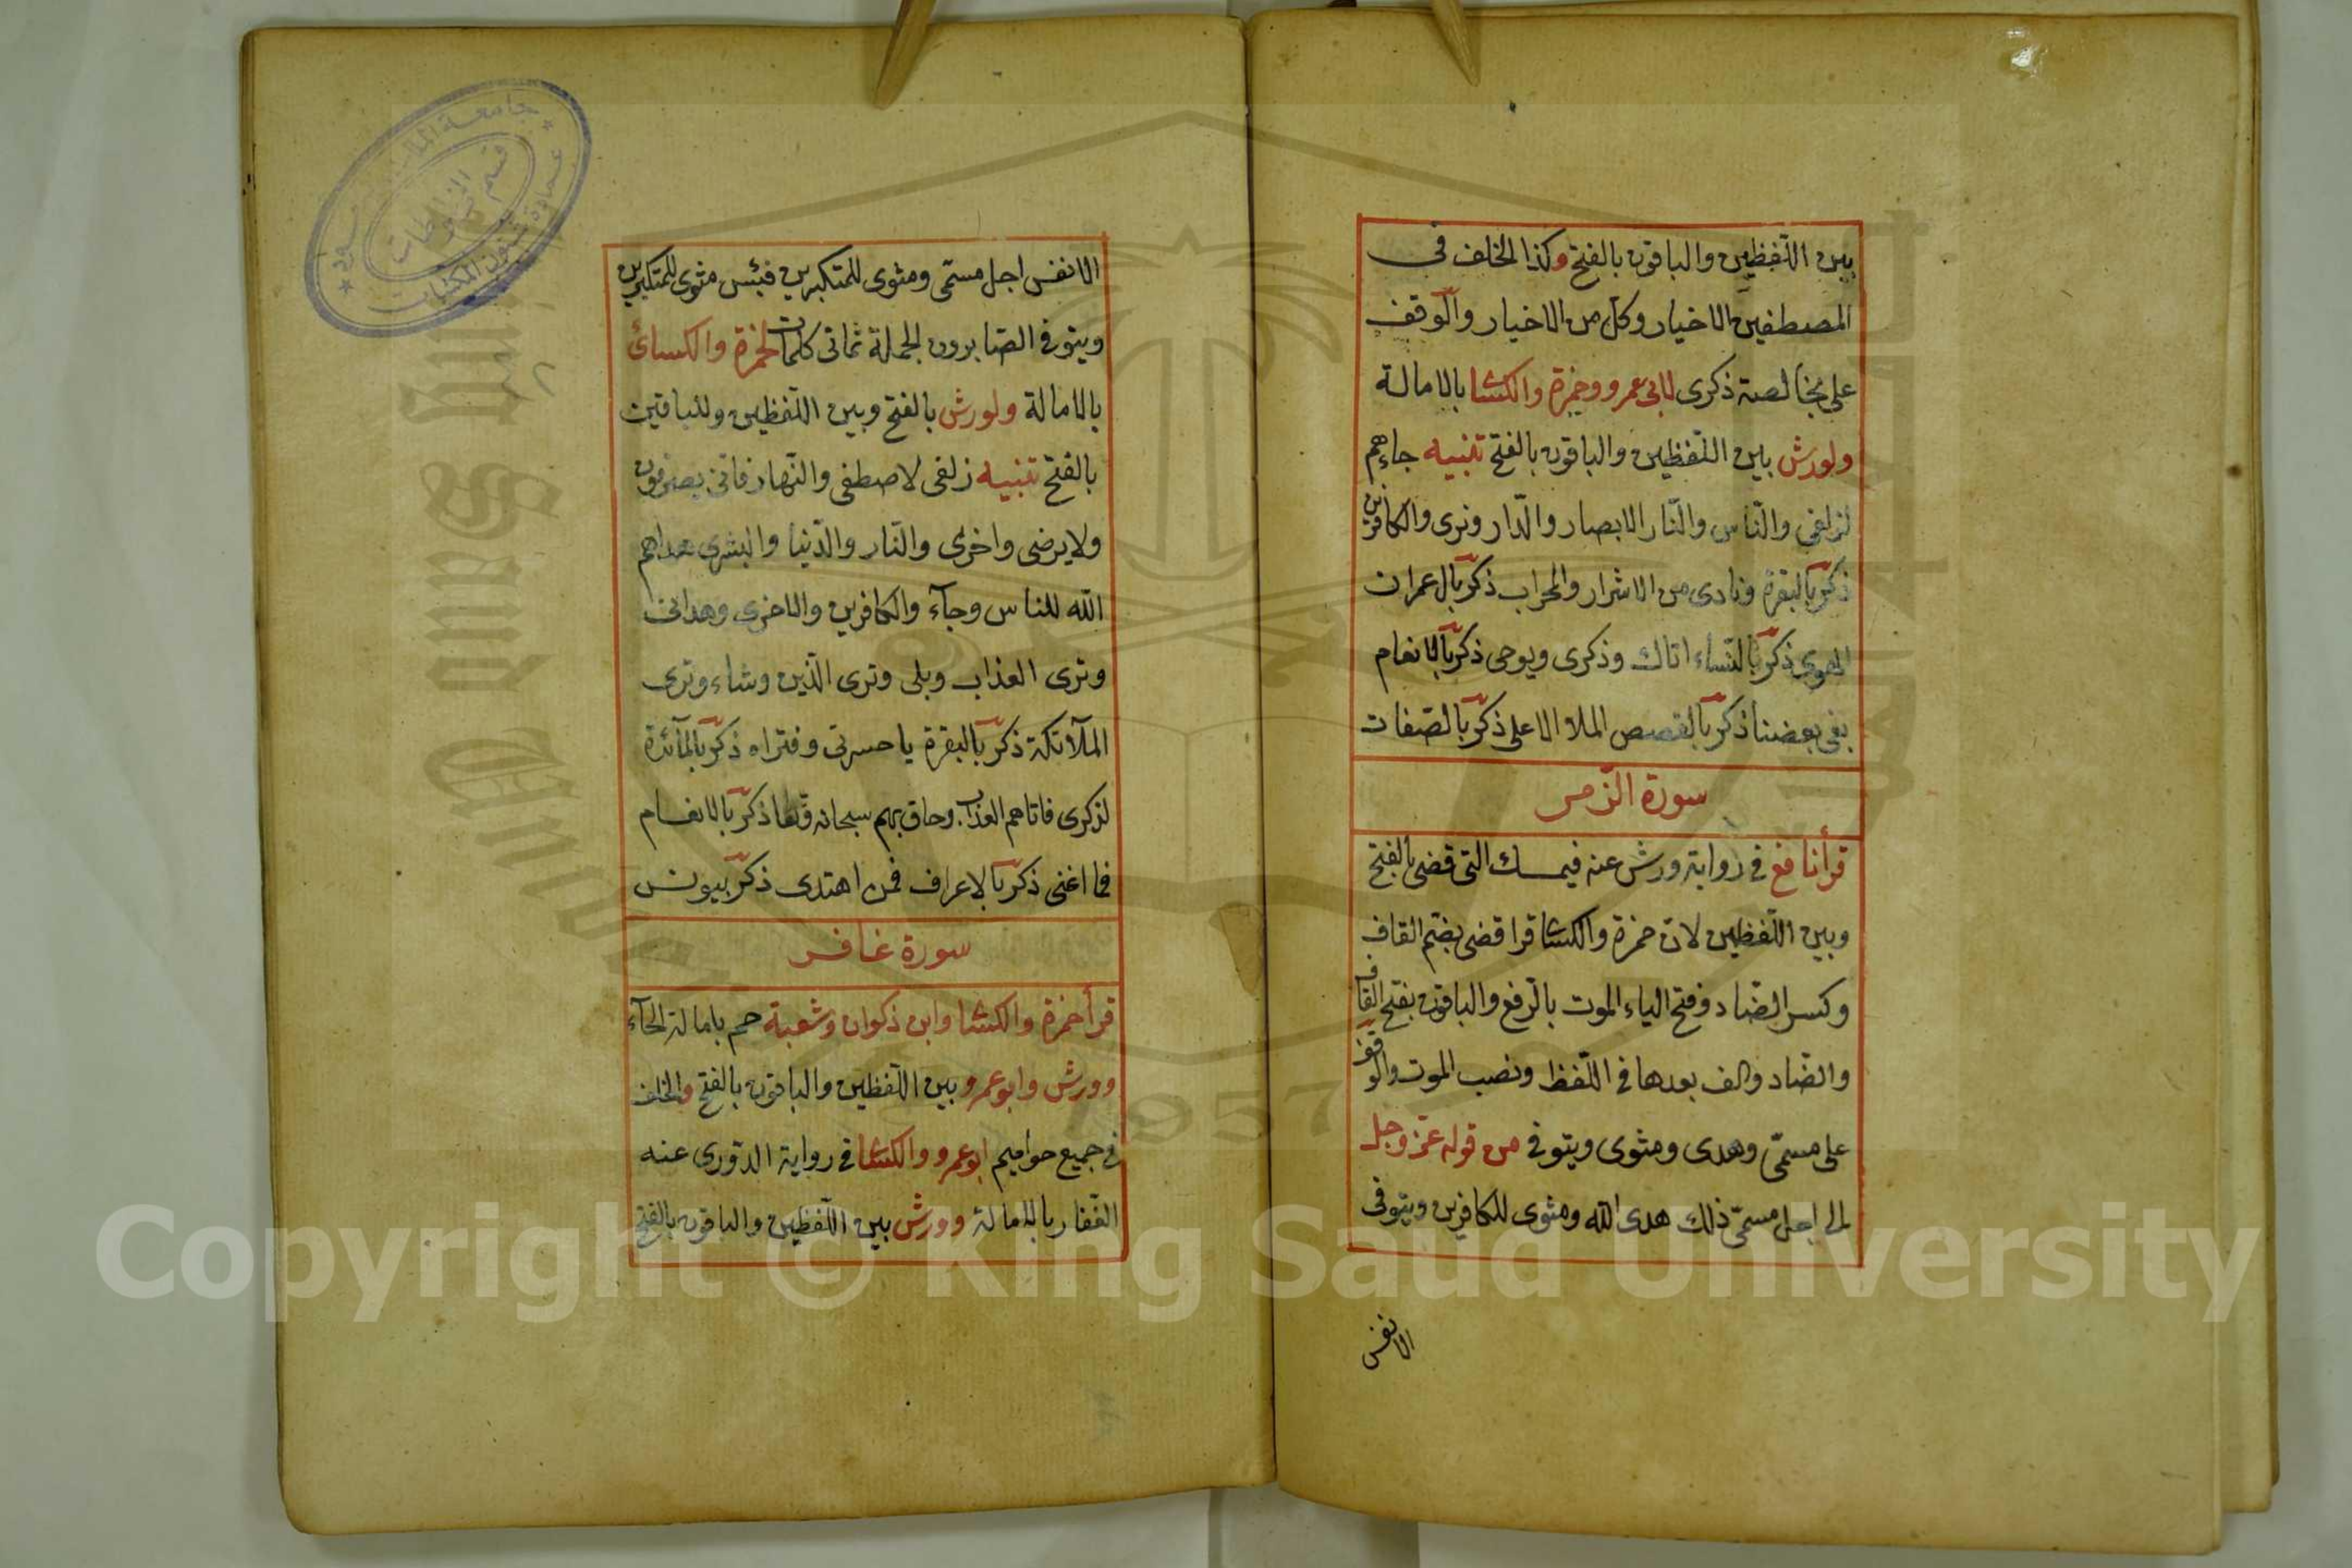 بين اللّفظين والباقون بالفتح وكذا الخلف فى
المصطفين الاخيار وكل من الاخيار والوقف
على بخالصة ذكرى لابى عمرو وحمزة والكسا بالامالة
ولورش بين اللّفظين والباقون بالفتح تنبيه جاءهم
لزلفى والنّاس والنّار الابصار والدّار ونرى والكافرين
ذكر بالبقرة ونادى من الاشرار والمحراب ذكر بال عمران
الهوى ذكر بالنّساء اتاك وذكرى ويوحى ذكر بالانعام
بغى بعضنا ذكر بالقصص الملا الاعلى ذكر بالصّفات
سورة الزّمر
قرأ نافع فى رواية ورش عنه فيمسك التى قضى بالفتح
وبين اللّفظين لان حمزة والكسا قرا قضى بضم القاف
وكسر الضّاد وفتح الياء الموت بالرّفع والباقون بفتح القاف
والضّاد والف بعدها فى اللّفظ ونصب الموت والوقف
على مسمّى وهدى ومثوى ويتوفى من قوله عزّ وجل
الى اجل مسمّى ذلك هدى الله ومثوى للكافرين ويتوفى
الانفس
الانفس اجل مسمّى ومثوى للمتكبرين فبئس مثوى للمتكبرين
ويتوفى الصّابرون الجملة ثمانى كلمات لحمزة والكسائى
بالامالة ولورش بالفتح وبين اللّفظين وللباقين
بالفتح تنبيه زلفى لاصطفى والنّهار فانى يصرفون
ولا يرضى واخرى والنّار والدّنيا والبشرى هداهم
الله للناس وجآء والكافرين والاخرى وهدانى
وترى العذاب وبلى وترى الّذين وشاء وترى
الملآئكة ذكر بالبقرة يا حسرتى وفتراه ذكر بالمآئدة
لذكرى فاتاهم العذاب وحاق بهم سبحانه ذكر بالانعام
فما اغنى ذكر بالاعراف فمن اهتدى ذكر بيونس
سورة غافر
قرأ حمزة والكسا وابن ذكوان وشعبة حم بامالة الحآء
وورش وابو عمرو بين اللّفظين والباقون بالفتح والخلف
فى جميع حواميم ابو عمرو والكسا فى رواية الدّورى عنه
الغفّار بالامالة وورش بين اللّفظين والباقون بالفتح
جامعة الملك سعود
عمادة شئون المكتبات
قسم المخطوطات
King Saud University
1957
Copyright © King Saud University